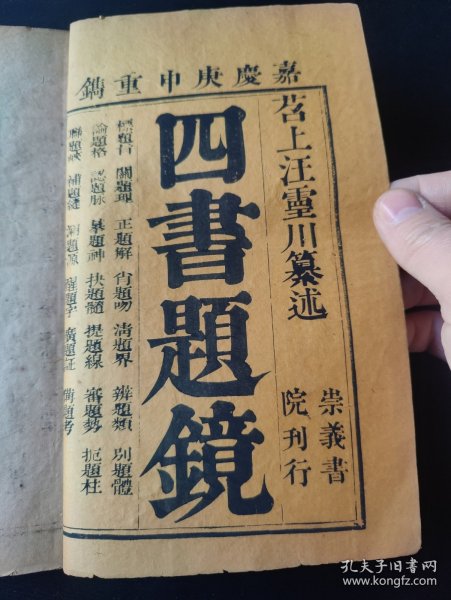 嘉慶庚申重鐫
苕上汪靈川纂述
崇義書
院刊行
四書題鏡
標題旨 關題理 正題解 肖題吻 清題界 辨題類 別題體
論題格 認題脉 摹題神 抉題髓 提題線 審題勢 扼題柱
聯題 補題縫 題 題字 廣題証 題考
孔夫子旧书网
www.kongfz.com